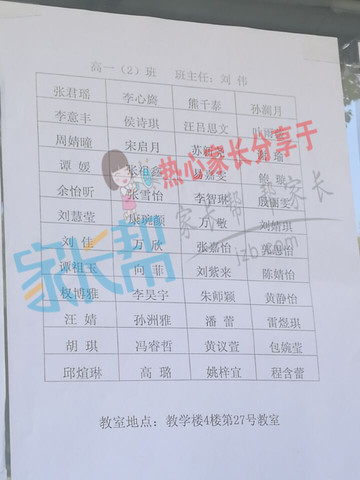 高一（2）班 班主任：刘 伟
张君瑶 李心旖 熊千泰 孙澜月
李意丰 侯诗琪 汪吕思文
周婧曈 宋启月
谭 媛 张祖鑫
余怡昕 张雪怡 李智琳 殷丽雯
刘慧莹 庹琬颜 万 敬 刘婧琪
刘 佳 万 欣 张嘉怡
谭祖玉 向 菲 刘紫来 陈婧怡
权博雅 李昊宇 朱师颖 黄静怡
汪 婧 孙洲雅 潘 蕾 雷煜琪
胡 琪 冯睿哲 黄议萱 包婉莹
邱煊琳 高 璐 姚梓宜 程含蕾
教室地点：教学楼4楼第27号教室
热心家长分享于
家长帮
家长帮 帮家长
jzb.com